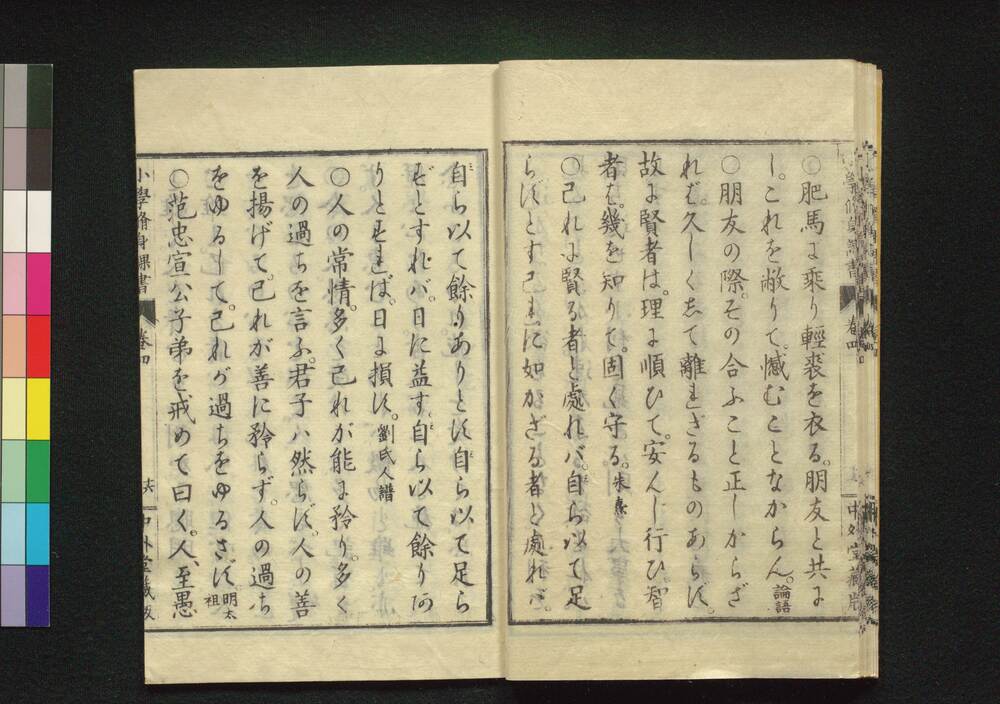 ○肥馬に乘り輕裘を衣る。朋友と共に
し。これを敝りて。憾むことなからん。論語
○朋友の際。その合ふこと正しからざ
れば。久しくして離れざるものあらず。
故に賢者は。理に順ひて。安んじ行ひ智
者は。幾を知りて。固く守る。朱熹
○己れに賢る者と處れバ。自ら以て足
らずとす己れに如かざる者と處れバ。
自ら以て餘りありとす自ら以て足ら
ずとすれバ。日に益す自ら以て餘りあ
りとすれば。日に損ず。劉氏人譜
○人の常情。多く己れが能に矜り。多く
人の過ちを言ふ。君子ハ然らず。人の善
を揚げて。己れが善に矜らず。人の過ち
をゆるして。己れが過ちをゆるさず。明太祖
○范忠宣公子弟を戒めて曰く。人至愚
小學脩身課書 卷四 十六 中外堂藏版